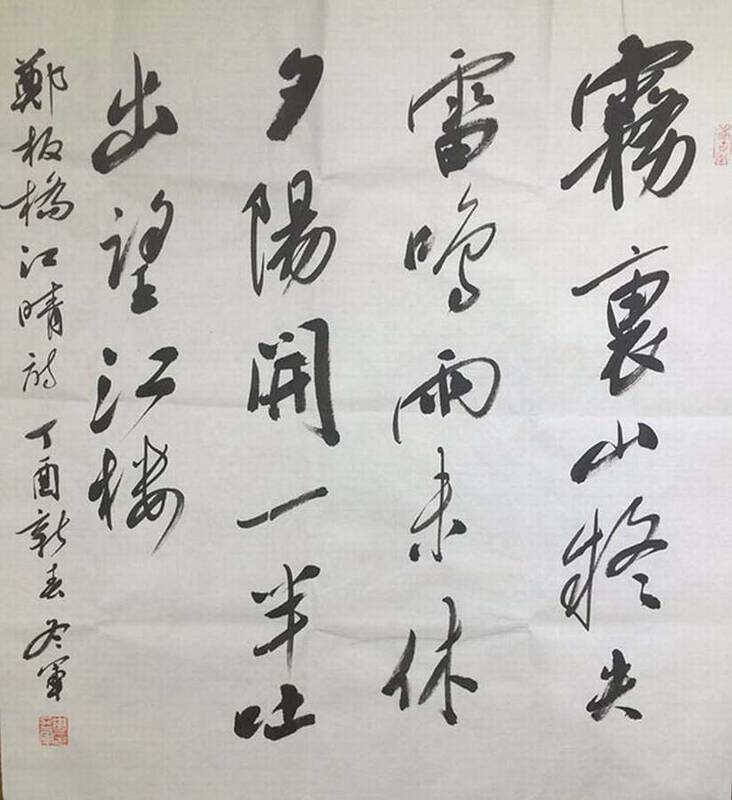 霧裏山疑失
雷鳴雨未休
夕陽開一半吐
出望江楼
鄭板橋江晴詩 丁酉新春冬軍